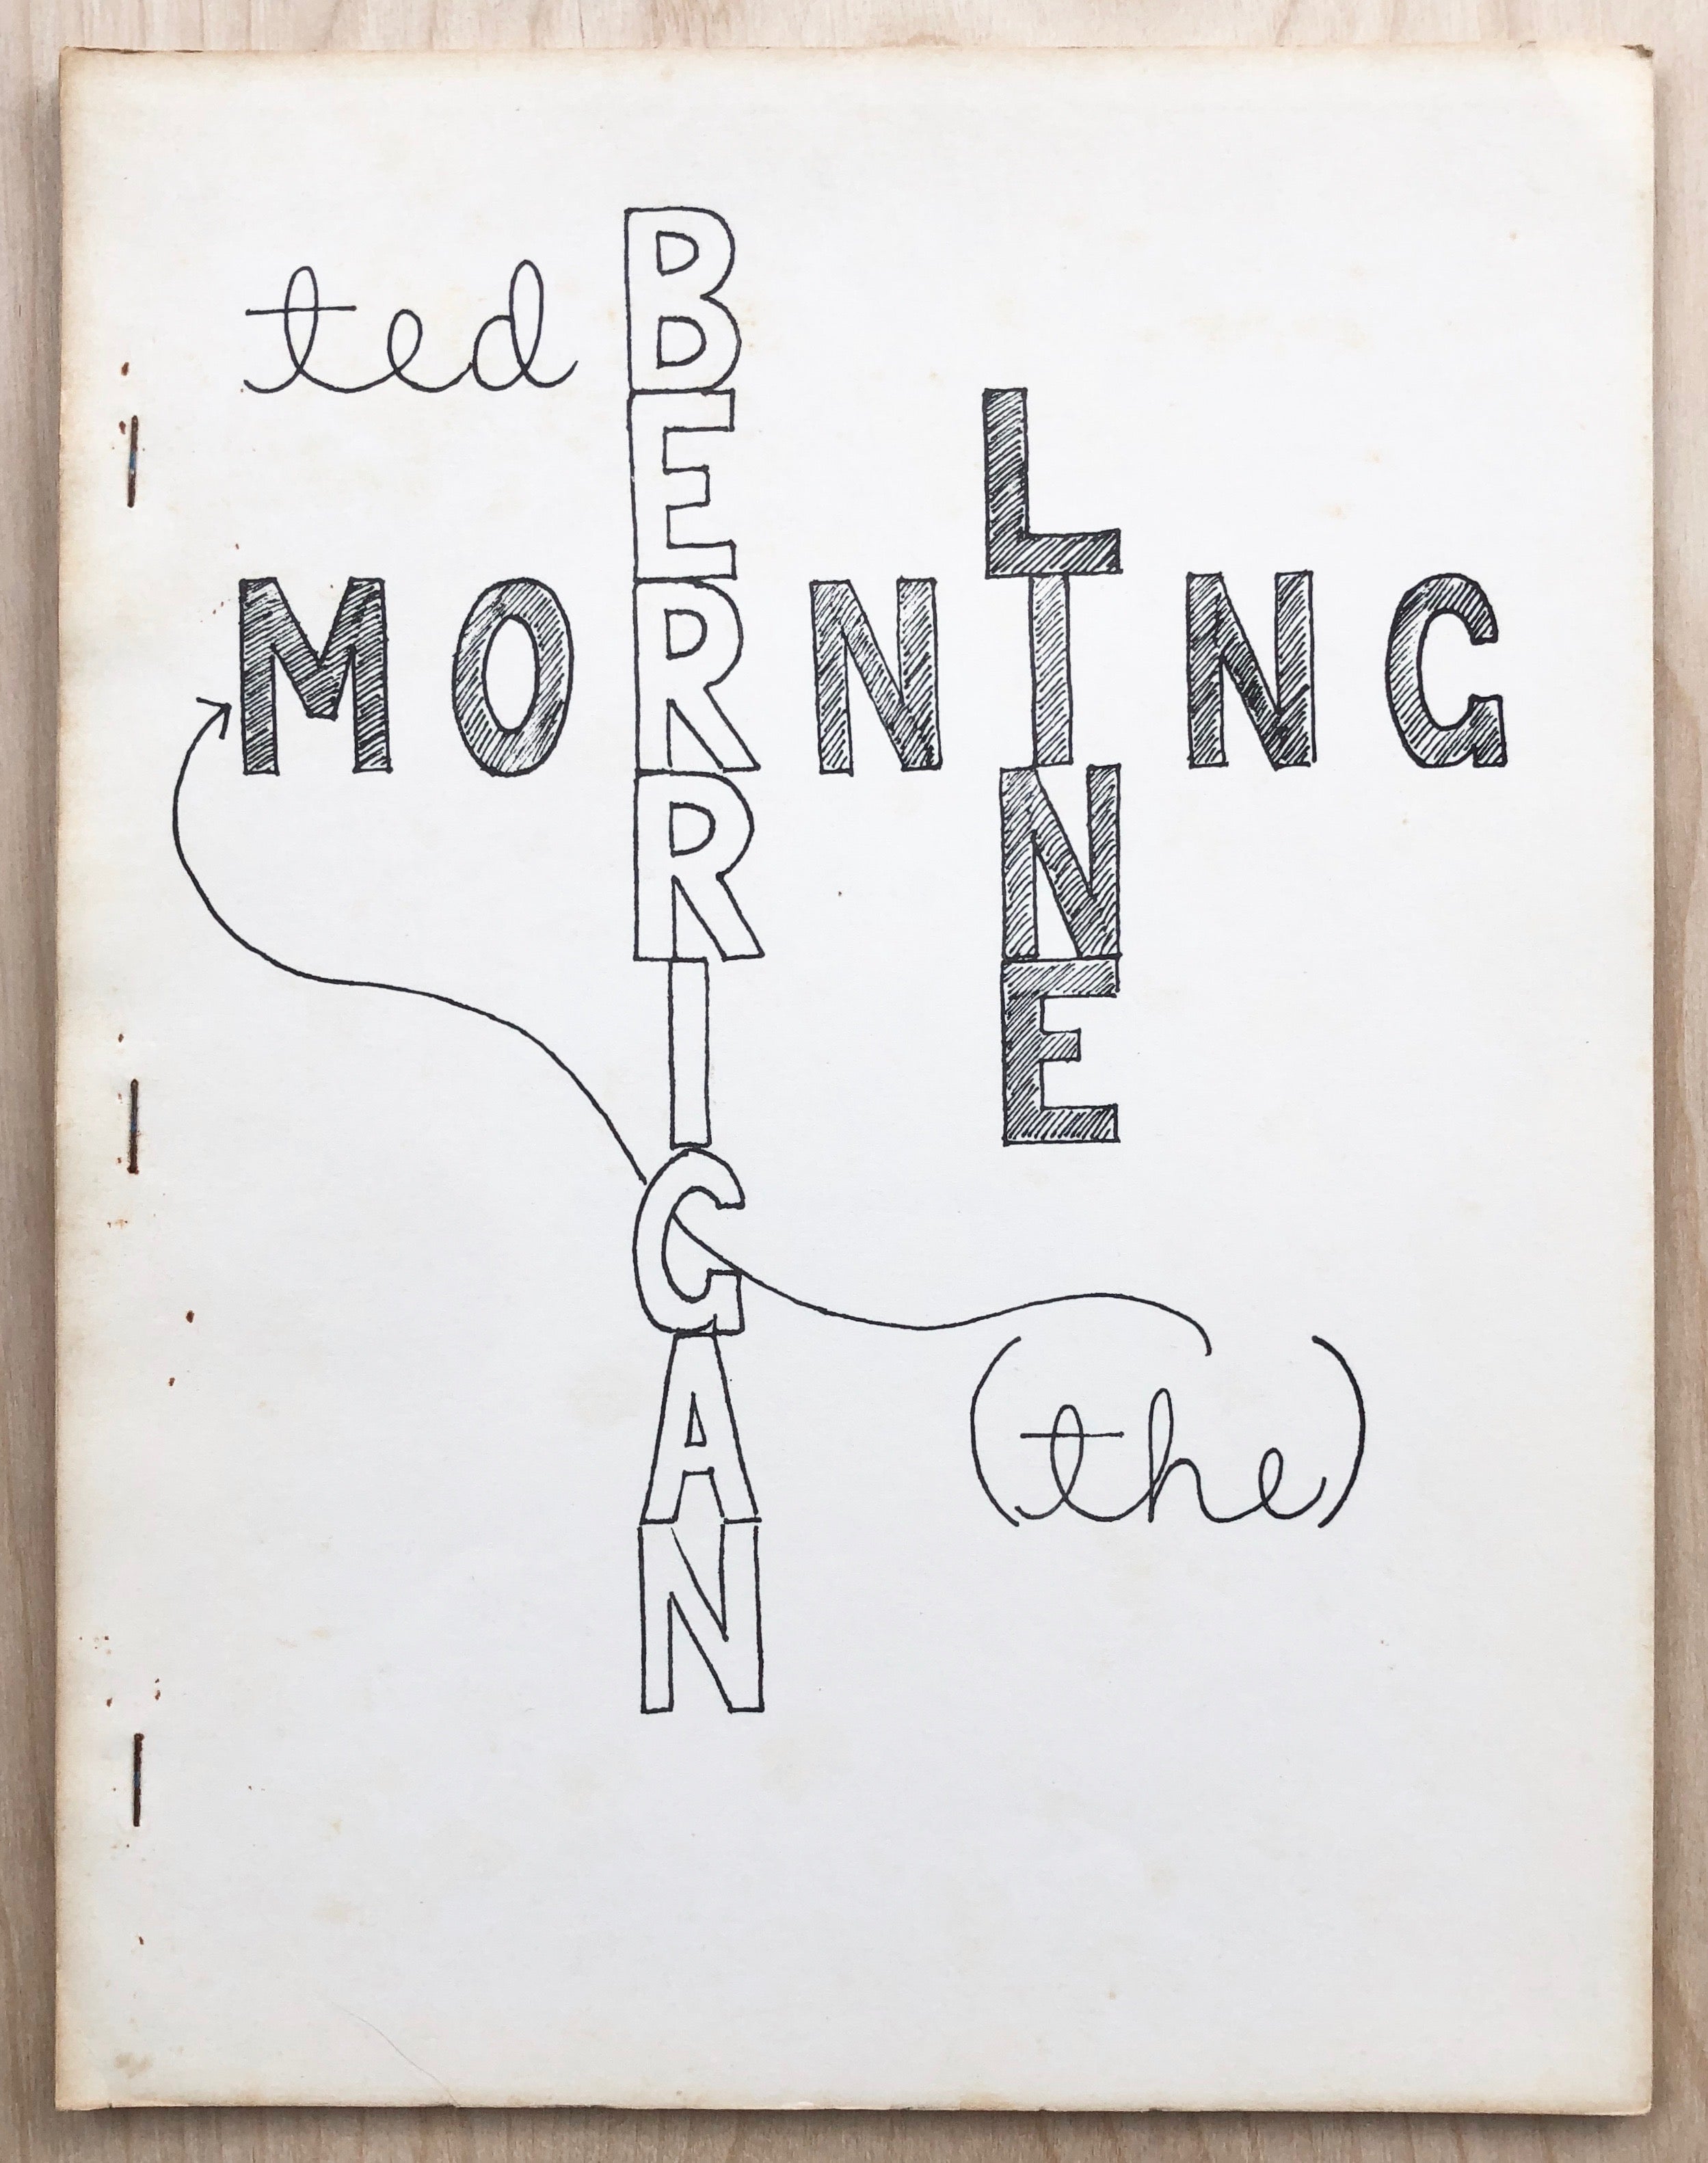 ted
BERRIGAN
MORNING
LINE
(the)